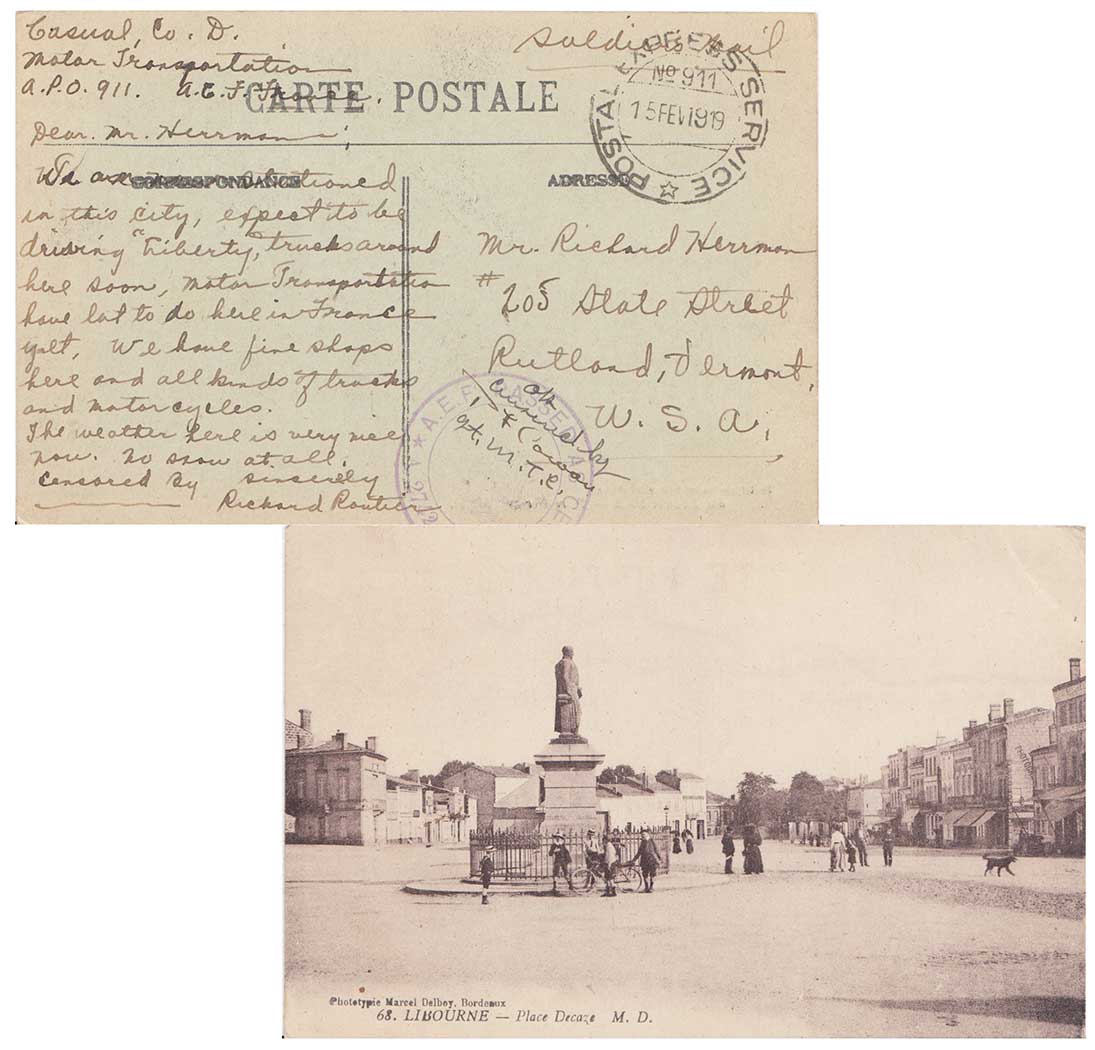 Casual, Co. D.
Motor Transportation
A.P.O. 911. A.E.F. France.
Soldier's Mail
CARTE POSTALE
POSTAL EXPRESS SERVICE
No 911
15 FEV 1919
Dear. Mr. Herrman;
CORRESPONDANCE
ADRESSE
We are now stationed
in this city, expect to be
driving "Liberty" trucks around
here soon, Motor Transportation
have lot to do here in France
yet, We have fine shops
here and all kinds of trucks
and motorcycles.
The weather here is very nice
now. No snow at all.
Censored By Sincerely
Richard Routier
Mr. Richard Herrman
# 205 State Street
Rutland, Vermont,
W. S. A,
OK
Censored by
M. T. C.
A.E.F. PASSED A
CE
68. LIBOURNE — Place Decaze M. D.
Phototypie Marcel Delboy, Bordeaux